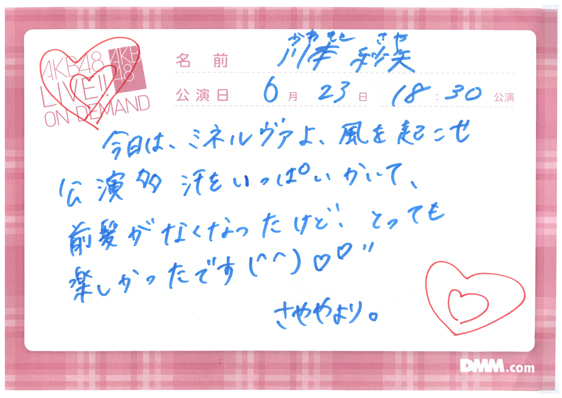 AKB48
LIVE!!
ON DEMAND
AKB
48
名前 川本 紗矢
かわもと さや
公演日 6月23日 18:30公演
今日は、ミネルヴァよ、風を起こせ
公演 汗をいっぱいかいて、
前髪がなくなったけど、とっても
楽しかったです(^^)♡♡"
さややより。
DMM.com